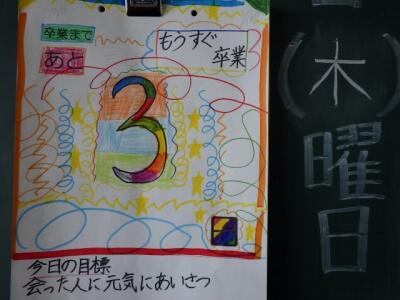 卒業まで
あと
もうすぐ
卒業
3
日
今日の目標
会った人に元気にあいさつ
(木)
曜日